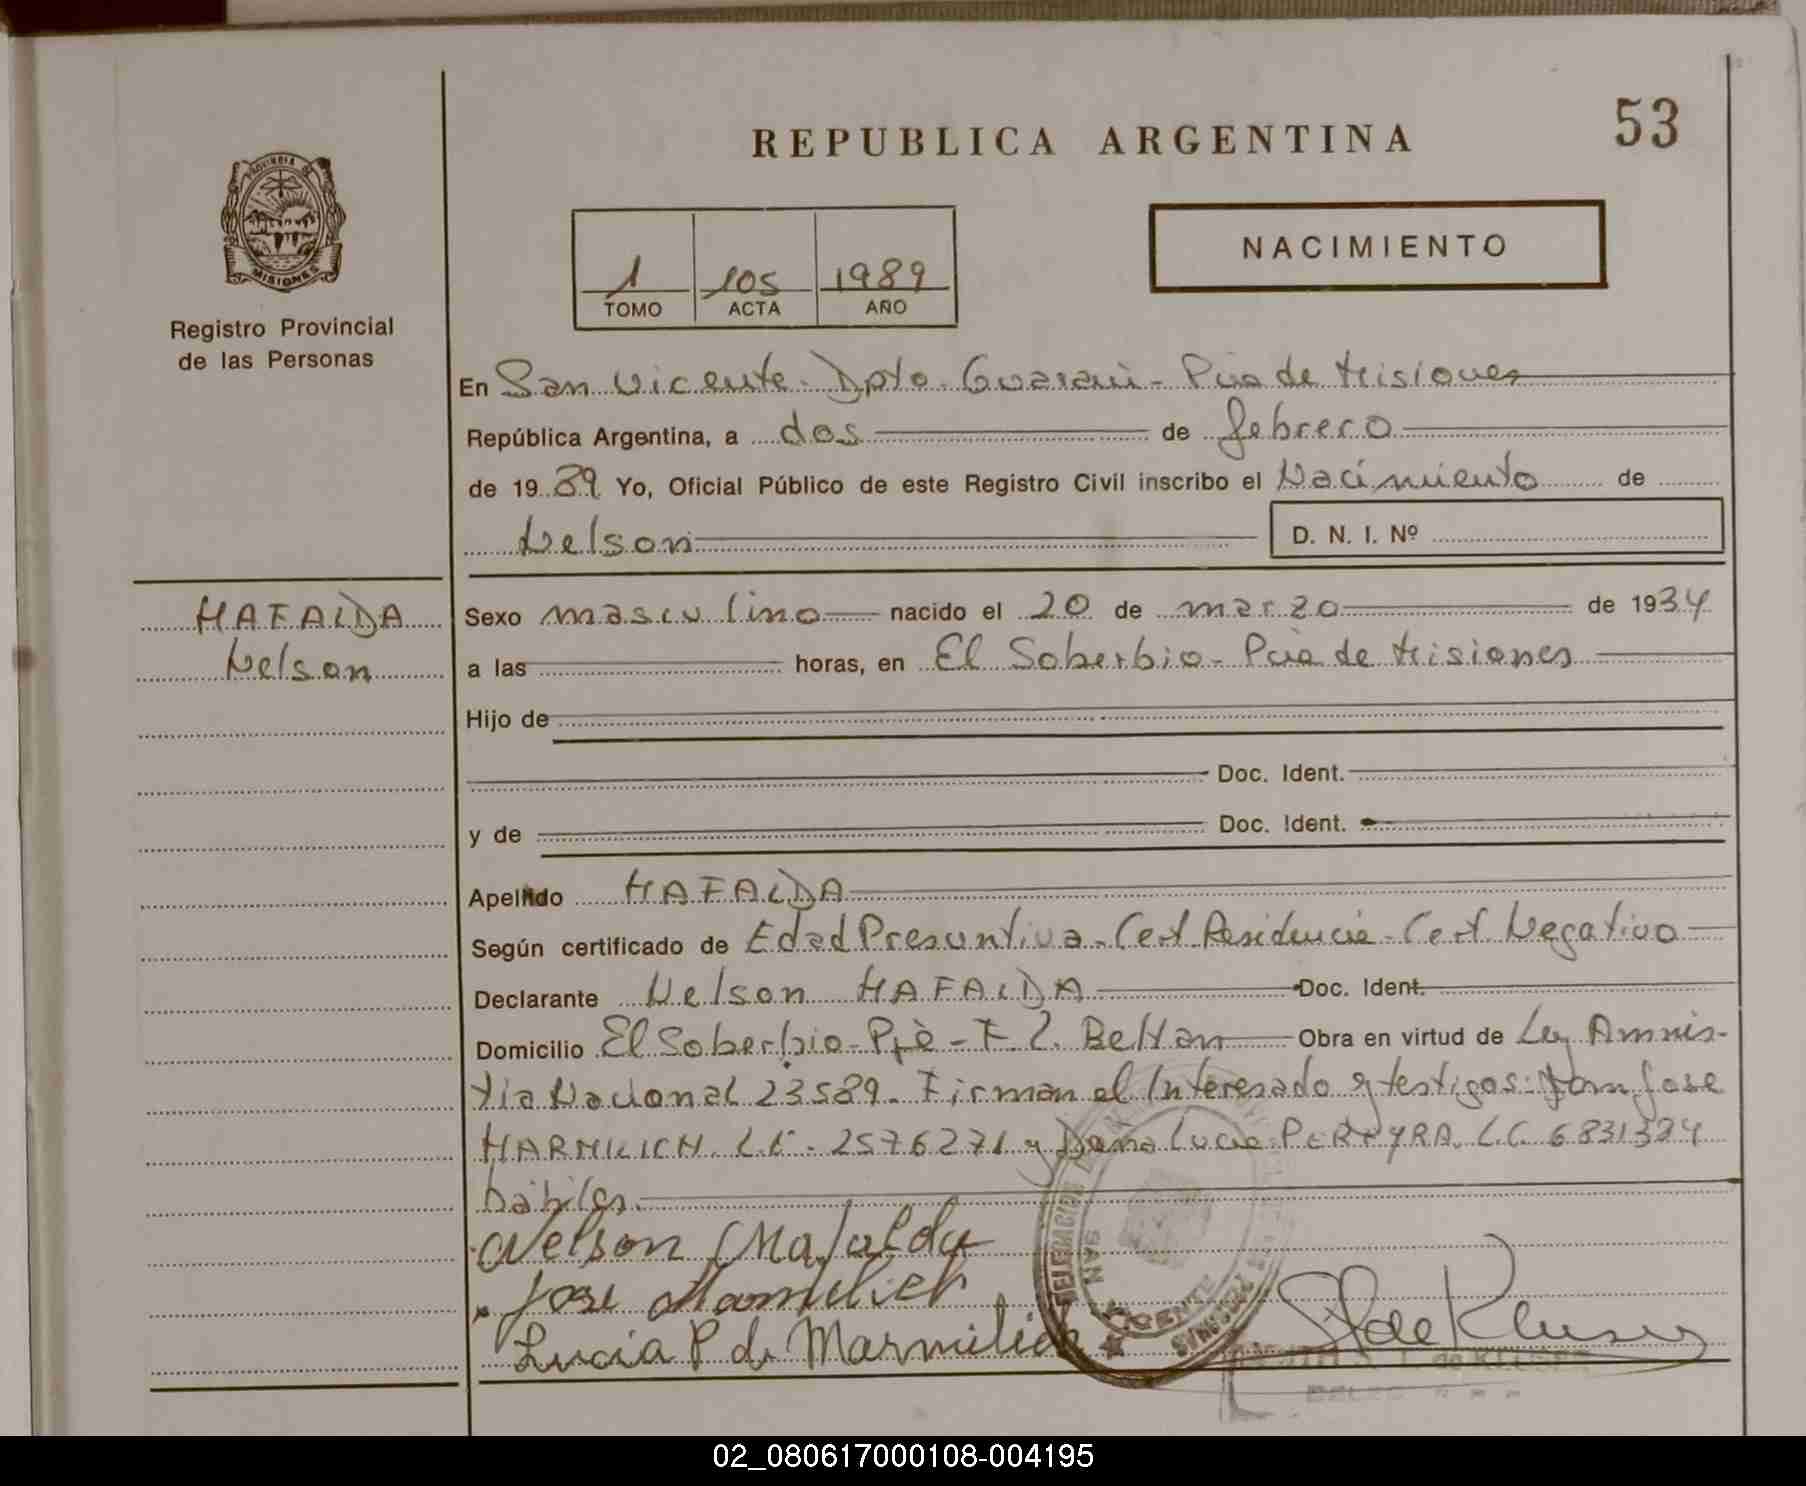 REPUBLICA ARGENTINA
53
PROVINCIA DE
MISIONES
Registro Provincial
de las Personas
1 105 1989
TOMO ACTA AÑO
NACIMIENTO
En San Vicente. Dpto. Guaraní - Pcia de Misiones
República Argentina, a dos de febrero
de 1989 Yo, Oficial Público de este Registro Civil inscribo el Nacimiento de
Nelson D. N. I. Nº
MAFALDA
Nelson
Sexo masculino nacido el 20 de marzo de 1934
a las horas, en El Soberbio - Pcia de Misiones
Hijo de
Doc. Ident.
y de Doc. Ident.
Apellido MAFALDA
Según certificado de Edad Presuntiva - Cert Residencia - Cert Negativo
Declarante Nelson MAFALDA Doc. Ident.
Domicilio El Soberbio - - F. L. Beltran Obra en virtud de Ley Amnis-
tia Nacional 23589. Firman el Interesado y testigos: José
MARMILICH. L.E. 2576271 y Doña Lucia PEREYRA. L.C. 6831324
hábiles.
Nelson Mafalda
Jose Marmilich
Lucia P de Marmilich
DELEGACION
SAN VICENTE
PERSONAS
de Kluser
de KLUSER
02_080617000108-004195